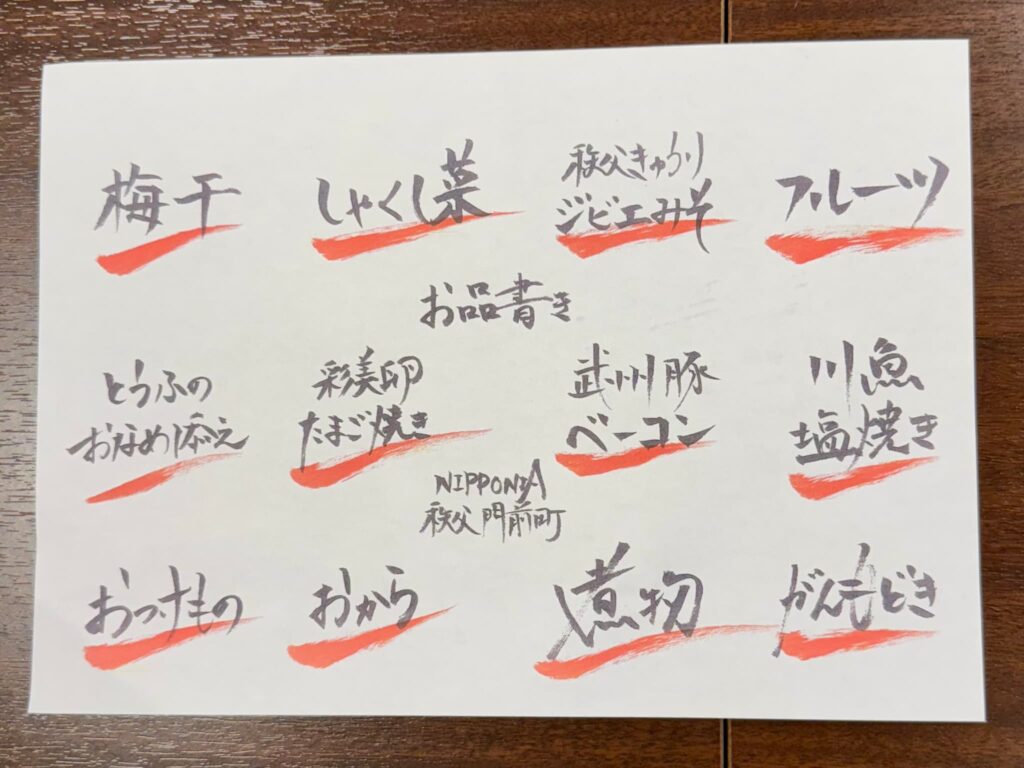 梅干
しゃくし菜
秩父きゅうり
ジビエみそ
フルーツ
お品書き
とうふの
おなめ添え
彩美卵
たまご焼き
武州豚
ベーコン
川魚
塩焼き
NIPPONIA
秩父門前町
おつけもの
おから
煮物
がんもどき